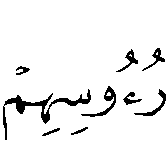 رُءُوسِهِمْ